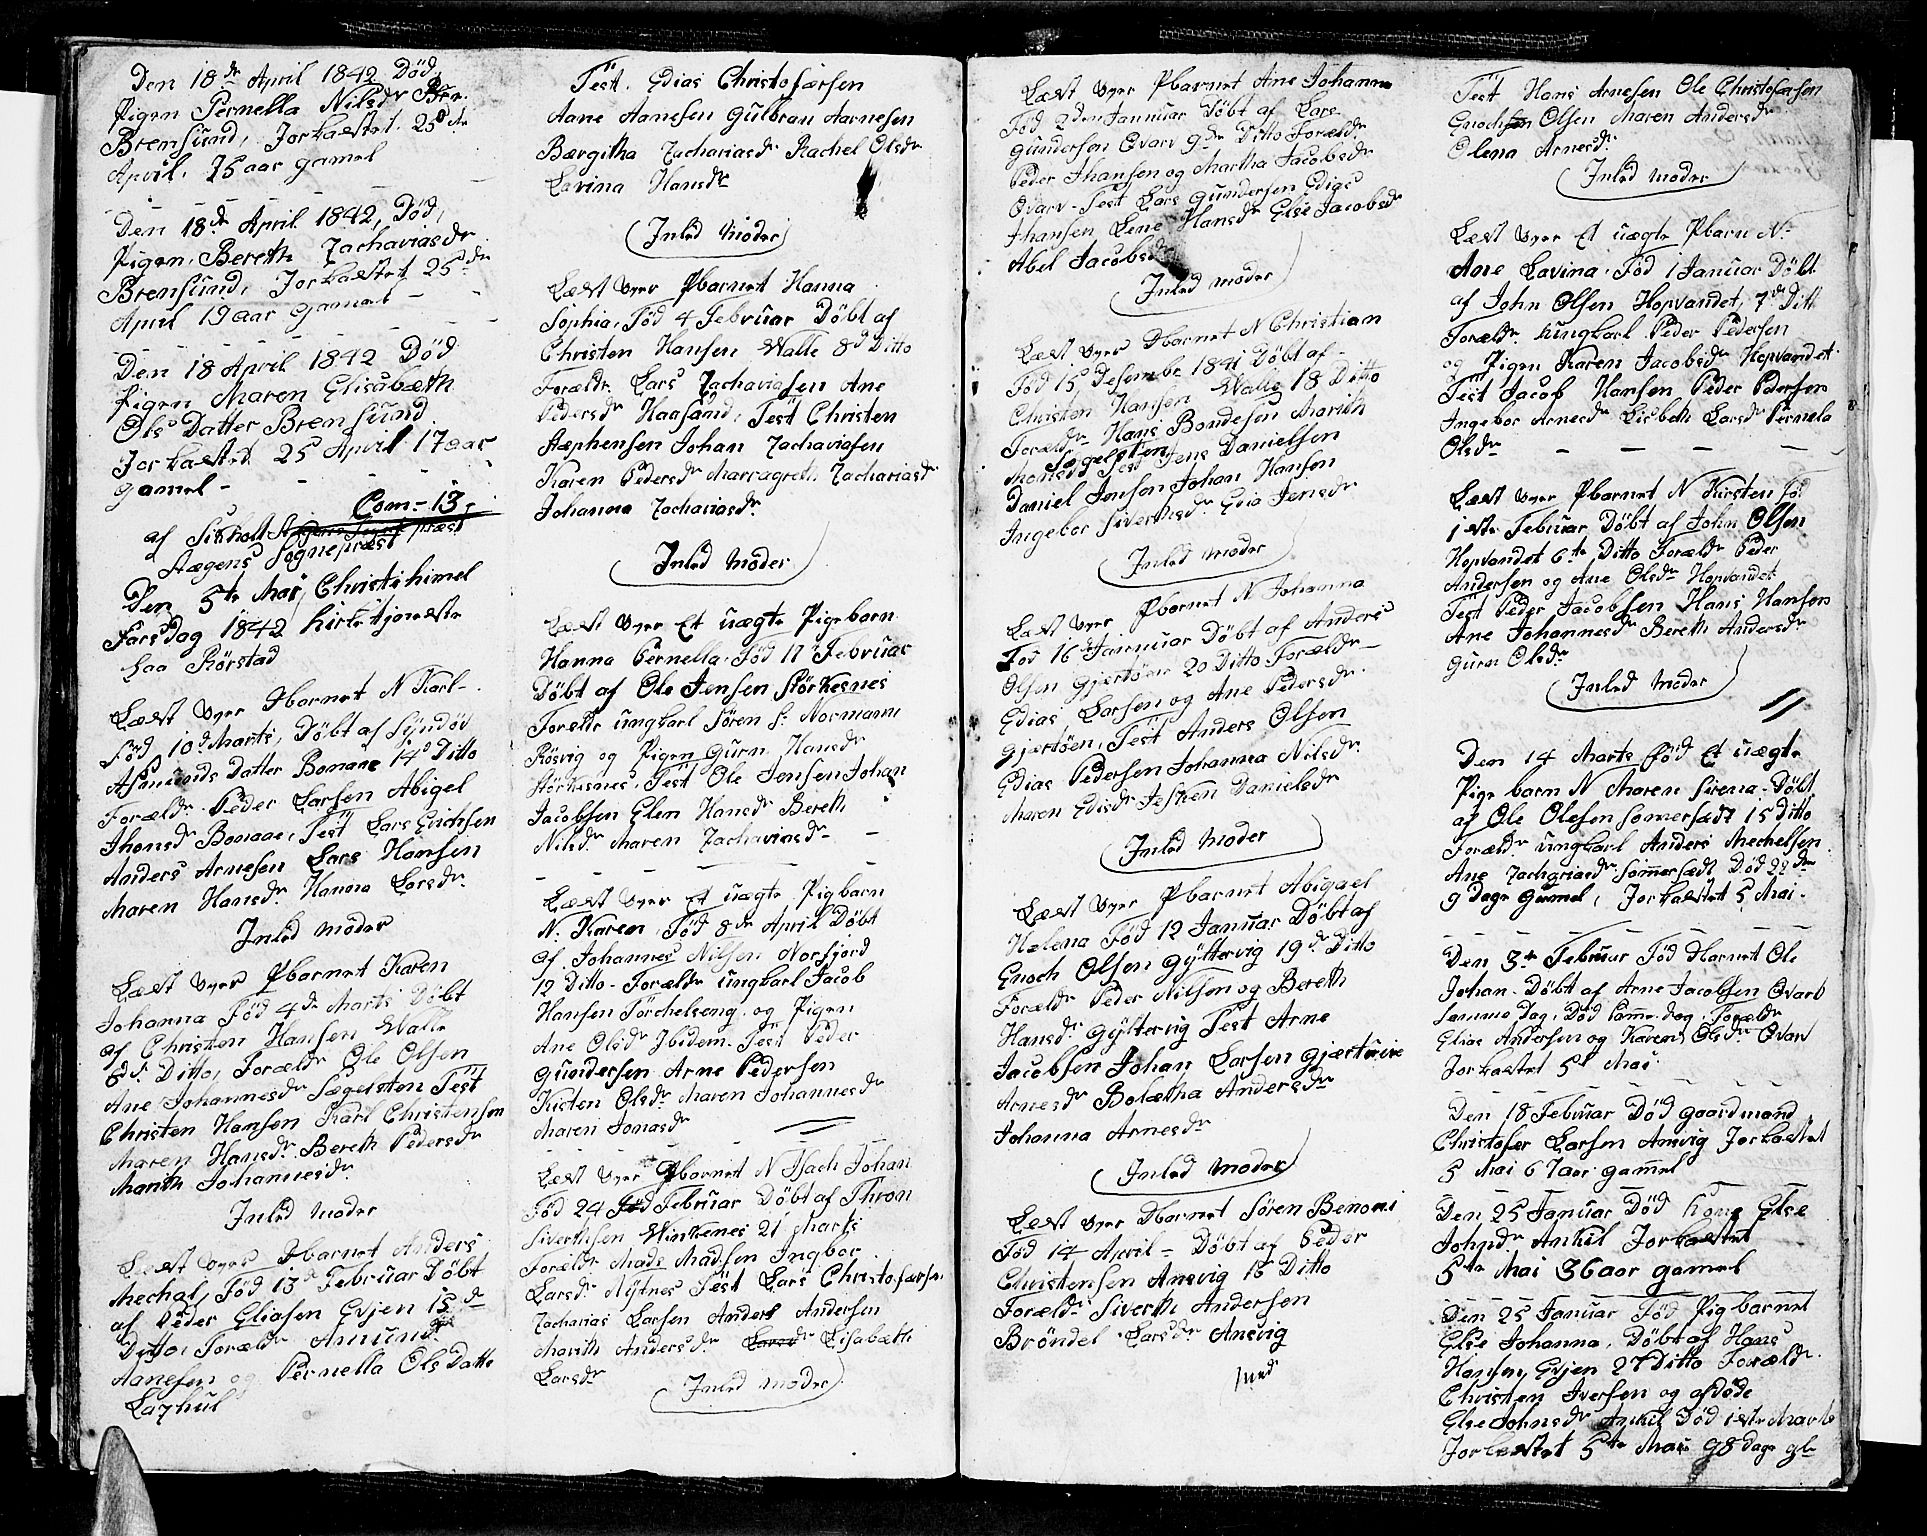 Den 18de April 1842 Død,
Pigen Pernella Nilsdr Bre-
Brensund, Jorkastet 25de
April, 25 aar gamel
Den 18de April 1842, Død,
Pigen, Bereth Zachariasdr
Brensund, Jorkastet 25de
April 19 aar gamel
Den 18 April 1842 Død
Pigen Maren Elisabeth
Ols Datter Brensund
Jorkastet 25 April 17 aar
gamel -
Com - 13,
af Sikholt
Aegens Sognepræst
Den 5te Mai, Christi himel
Fars Dag 1842 kirketjeneste
paa Rørstad
Læst over Dbarnet N Karl -
Fød 10de Marts, Døbt af Syndøv
Asmunds Datter Bonaae 14de Ditto
Forældr. Peder Larsen Abigel
Jhonsdr Bonaae, Test Lars Erichsen
Anders Arnesen Lars Hansen
Maren Hansdr. Hanna Larsdr.
Inled moder
Læst over Pbarnet Karen
Johanna Fød 4de Marts Døbt
af Christen Hansen Walle
6de Ditto, Forældr Ole Olsen
Ane Johannesdr Sægelsten Test
Christen Hansen Karl Christensen
Maren Hansdr. Bereth Pedersdr
Marith Johannesdr.
Inled moder
Læst over Dbarnet Anders
Mechal, Fød 13de Februar Døbt
af Peder Eliasen Evjen 15de
Ditto, Forældr Amund
Aanesen og Pernella Ols Datte
Layhul
Test. Edias Christofersen
Aane Aanesen Gulbran Aarnesen
Bærgitha Zachariasdr Rachel Olsdr
Lavina Hansdr
Inled moder
Læst over Pbarnet Hanna
Sophia, Fød 4 Februar Døbt af
Christen Hansen Walle 8de Ditto
Forældr Lars Zachariasen Ane
Pedersdr Haasand, Test Christen
Stephensen Johan Zachariasen
Karen Pedersdr Marragreth Zachariasdr
Johanna Zachariasdr.
Inled moder
Læst over Et uægte Pigebarn
Hanna Pernella, Fød 17 Februar
Døbt af Ole Jensen Størkesnes
Forældr ungkarl Søren S. Normann
Røsvig og Pigen Gurn Hansdr
Størkesnes, Test Ole Jensen Johan
Jacobsen Elen Hansdr Bereth
Nilsdr. Maren Zachariasdr
Læst over Et uægte Pigbarn
N. Karen, Fød 8de April Døbt
af Johannes Nilsen Norfjord
12 Ditto - Forældr ungkarl Jacob
Hansen Torchelseng og Pigen
Ane Olsdr Ibidem. Test Peder
Gundersen Arne Pedersen
Kisten Olsdr Maren Johannesdr
Maren Jonasdr
Læst over Dbarnet N Isach Johan
Fød 24 Februar Døbt af Thron
Siverthsen Winkenes 21 Marts
Forældr Mads Madsen Ingbor
Larsdr Nystnes Test Lars Christofersen
Zacharias Larsen Anders Andersen
Marith Andersdr Elisabeth
Larsdr
Inled moder
Læst over Pbarnet Ane Johanna
Fød 2den Januar Døbt af Lars
Gundersen Qvarv 9de Ditto Forældr
Peder Jhansen og Martha Jacobsdr
Qvarv - Test Lars Gundersen Edias
Jhansen Lene Hansdr Else Jacobsdr
Abel Jacobsdr
Inled moder
Læst over Dbarnet N Christian
Fød 15 Desembr 1841 Døbt af -
Christen Hansen Walle 18 Ditto
Forældr. Hans Bondesen Marith
Monsdr Sægelsten Test Jens Danielsen
Daniel Jensen Johan Hansen
Ingebor Siverthsdr Edia Jensdr
Inled moder
Læst over Pbarnet N Johanna
Fød 16de Januar Døbt af Anders
Olsen Gjærtøen 20 Ditto Forældr -
Edias Larsen og Ane Pedersdr.
Gjertøen, Test Anders Olsen
Edias Pedersen Johanna Nilsdr
Maren Edisdr Jesken Danielsdr
Inled moder
Læst over Pbarnet Abigael
Helena Fød 12 Januar Døbt af
Enoch Olsen Gyltervig 19de Ditto
Forældr Peder Nilsen og Bereth
Hansdr Gyltervig Test Arne
Jacobsen Johan Larsen Gjærtu
Arnesdr Bolætha Andersdr
Johanna Arnesdr
Inled moder
Læst over Dbarnet Søren Benoni
Fød 14 April - Døbt af Peder
Christensen Ansvig 15 Ditto
Forældr Siverth Andersen
Brøndel Larsdr Ansvig
Test Hans Arnesen Ole Christofersen
Enochsen Olsen Maren Andersdr
Olena Arnesdr.
Inled moder
Læst over Et uægte Pbarn N.
Ane Lavina. Fød 1 Januar Døbt
af John Olsen Hopvandet, 7de Ditt
Forældr. ungkarl Peder Pedersen
og Pigen Karen Jacobsdr Hopvandet.
Test Jacob Hansen Peder Pedersen
Ingebor Arnesdr Lisbeth Larsdr Pernela
Olsdr
Læst over Pbarnet N Kirsten Fød
1ste Februar Døbt af John Olsen
Hopvandet 6te Ditto Forældr Peder
Andersen og Ane Olsdr Hopvandet
Test Peder Jacobsen Hans Hansen
Ane Johannesdr Bereth Andersdr
Gurn Olsdr
Inled moder
Den 14 Marts Fød Et uægte
Pige barn N Maren Sirena - Døbt
af Ole Olesen Somersædt 15 Ditto
Forældr ungkarl Anders Mechelsen
Ane Zachriasdr. Sommersædt Død 22de
9 Dage Gamel, Jorkastet 5 Mai.
Den 3de Februar Fød Dbarnet Ole
Johan - Døbt af Arne Jacobsen Qvarv
samme Dag, Død samme dag, Forældr
Elias Andersen og Karen Olsdr. Qvarv
Jorkastet 5te Mai.
Den 18 Februar Død gaardmand
Christofer Larsen Ansvig Jorkastet
5 Mai 67 aar gammel
Den 25 Januar Død Kone Else
Johnsdr. Ankil Jorkastet
5te Mai 36 aar gamel
Den 25 Januar Fød Pigbarnet
Else Johanna, Døbt af Hans
Hansen Evjen 27 Ditto Forældr.
Christen Iversen og afdøde
Else Johnsdr Ankil Død 1ste Marts
Jorkastet 5te Mai 98 Dage gl-